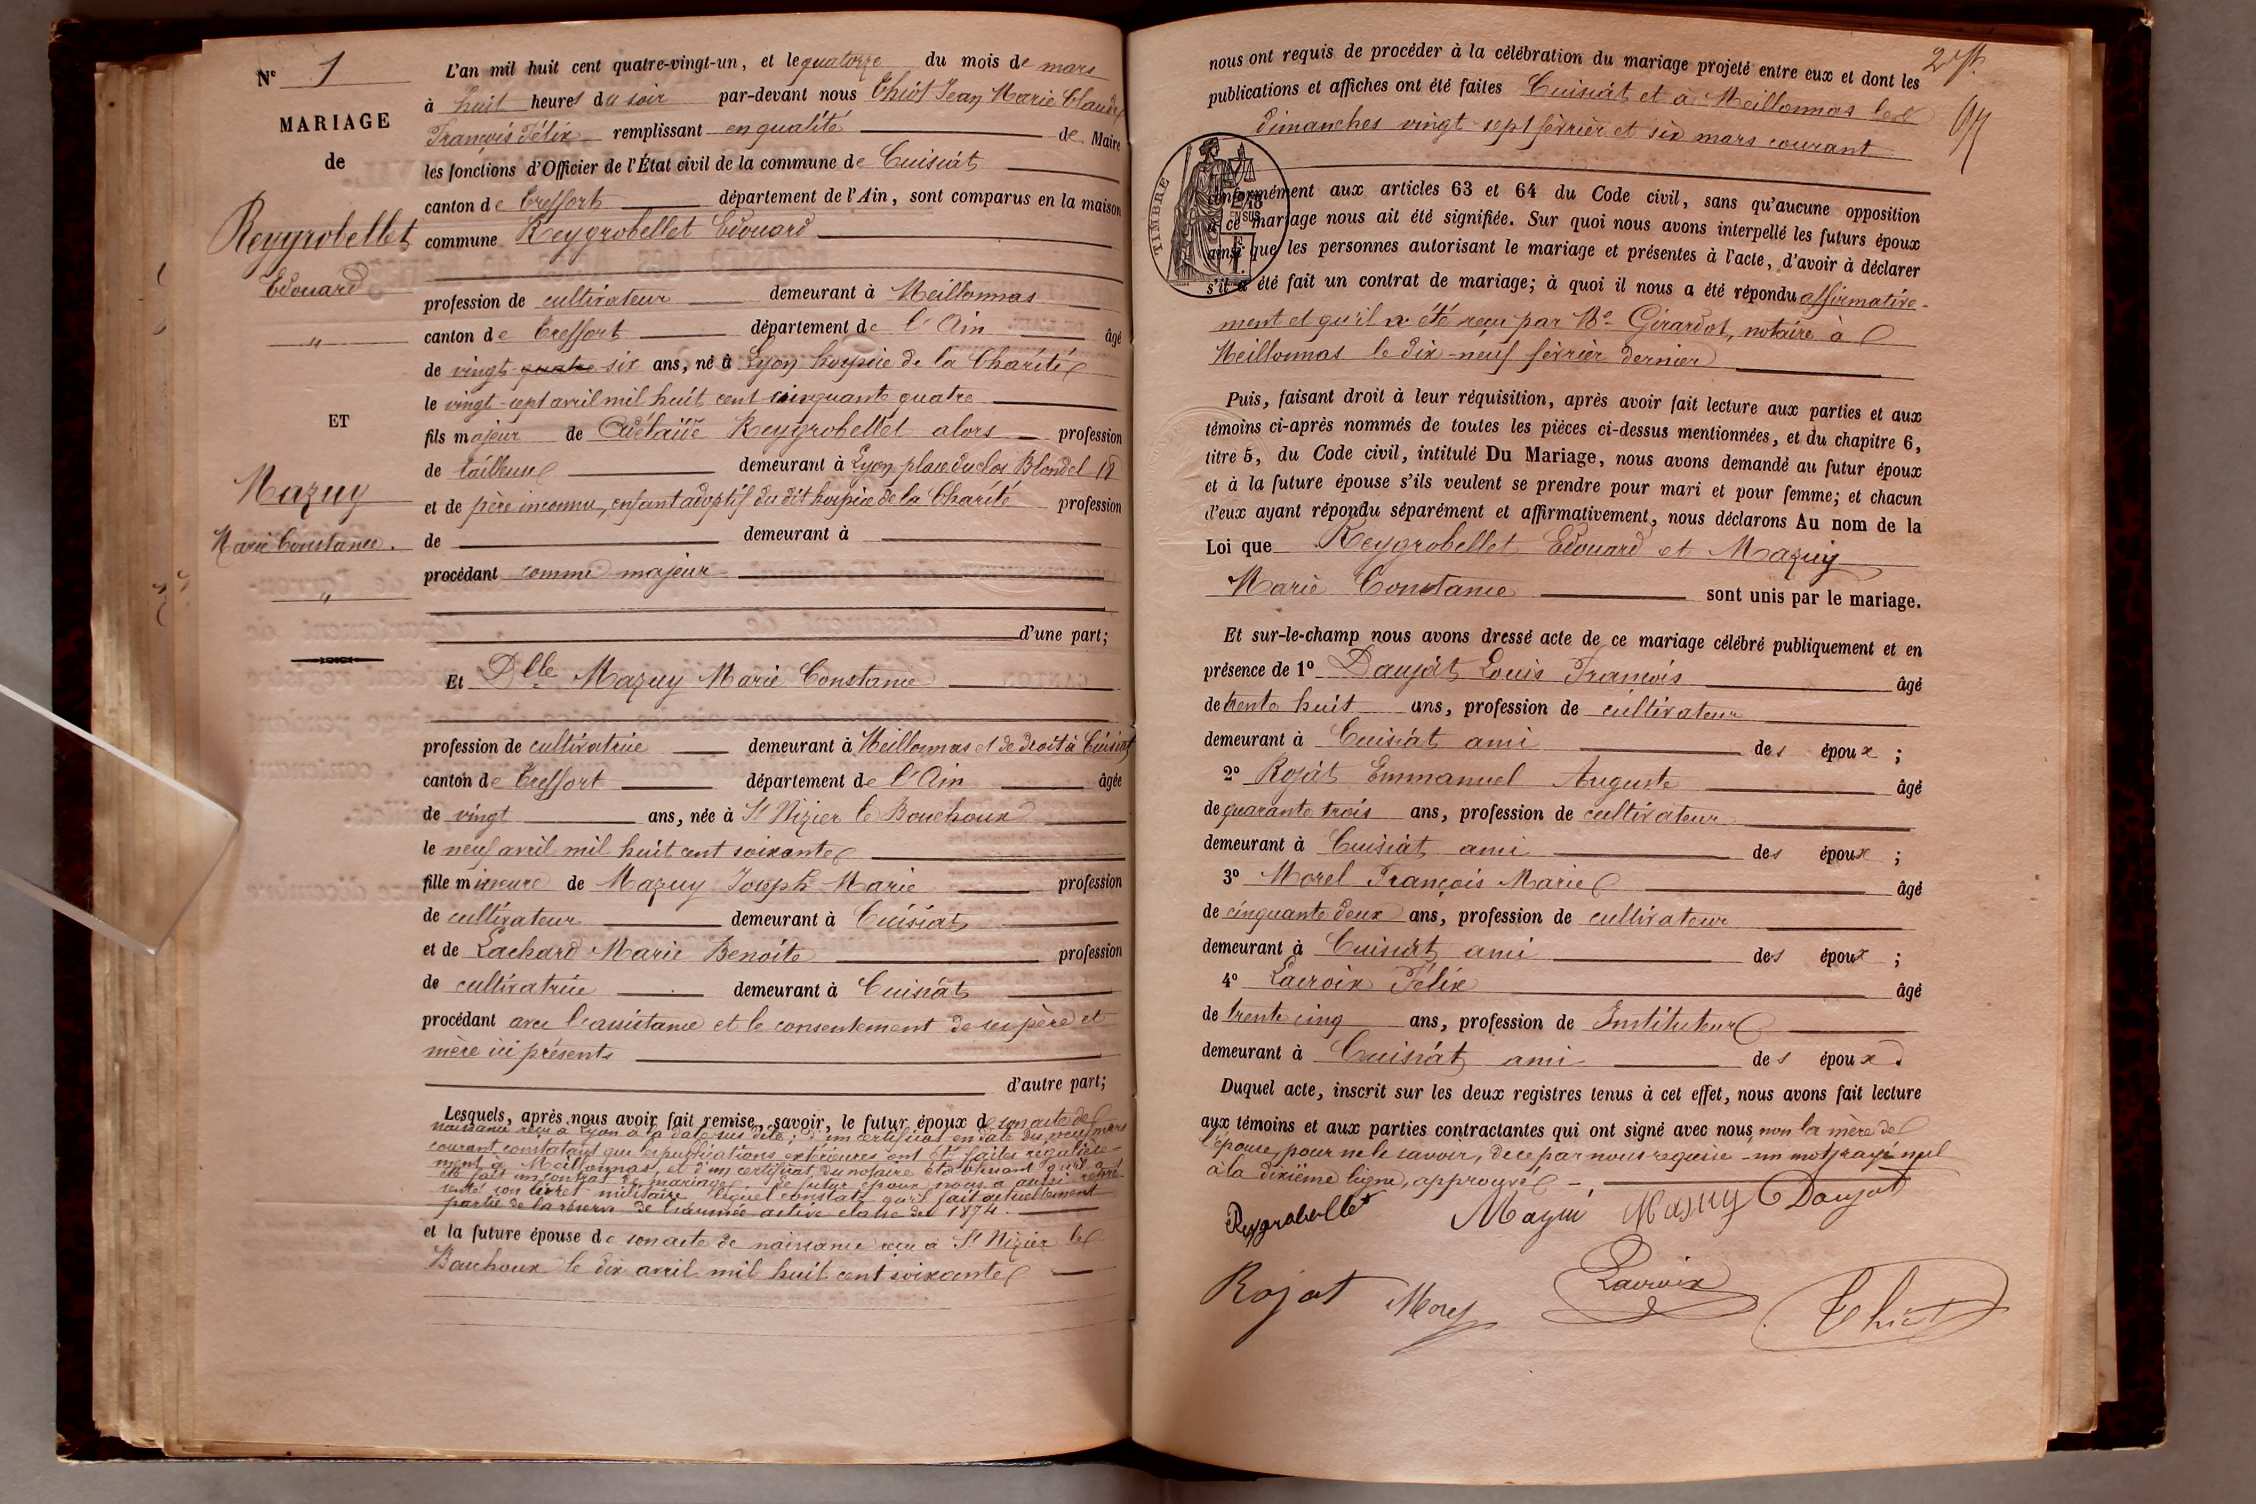 N° 1
MARIAGE
de
Reygrobellet
Edouard
"
ET
Mazuy
Marie Constance.
"
L'an mil huit cent quatre-vingt-un, et le quatorze du mois de mars
à huit heures du soir par-devant nous Thiot Jean Marie Claude
François Félix remplissant en qualité de Maire
les fonctions d'Officier de l'État civil de la commune de Cuisiat
canton de Treffort département de l'Ain, sont comparus en la maison
commune Reygrobellet Edouard
profession de cultivateur demeurant à Meillonnas
canton de Treffort département de l'Ain âgé
de vingt quatre six ans, né à Lyon hospice de la Charité
le vingt-sept avril mil huit cent cinquante quatre
fils majeur de Adélaïde Reygrobellet alors profession
de tailleuse demeurant à Lyon place du clos Blondel 18
et de père inconnu, enfant adoptif du dit hospice de la Charité profession
de demeurant à
procédant comme majeur
d'une part;
Et Dlle Mazuy Marie Constance
profession de cultivatrice demeurant à Meillonnas et de droit à Cuisiat
canton de Treffort département de l'Ain âgée
de vingt ans, née à St Nizier le Bouchoux
le neuf avril mil huit cent soixante
fille mineure de Mazuy Joseph Marie profession
de cultivateur demeurant à Cuisiat
et de Lachard Marie Benoite profession
de cultivatrice demeurant à Cuisiat
procédant avec l'assistance et le consentement de ses père et
mère ici présents
d'autre part;
Lesquels, après nous avoir fait remise, savoir, le futur époux de son acte de
naissance reçu à Lyon à la date sus dite; d'un certificat en date du neuf mars
courant constatant que les publications extérieures ont été faites régulière-
ment à Meillonnas, et d'un certificat du notaire établissant qu'il a
été fait un contrat de mariage. Le futur époux nous a aussi repré-
senté son livret militaire lequel constate qu'il fait actuellement
partie de la réserve de l'armée active classe de 1874.
et la future épouse de son acte de naissance reçu à St Nizier le
Bouchoux le dix avril mil huit cent soixante
nous ont requis de procéder à la célébration du mariage projeté entre eux et dont les
publications et affiches ont été faites Cuisiat et à Meillonnas les
dimanches vingt-sept février et six mars courant
TIMBRE
conformément aux articles 63 et 64 du Code civil, sans qu'aucune opposition
à ce mariage nous ait été signifiée. Sur quoi nous avons interpellé les futurs époux
ainsi que les personnes autorisant le mariage et présentes à l'acte, d'avoir à déclarer
s'il a été fait un contrat de mariage; à quoi il nous a été répondu affirmative-
ment et qu'il a été reçu par Me Girardot, notaire à
Meillonnas le dix-neuf février dernier
Puis, faisant droit à leur réquisition, après avoir fait lecture aux parties et aux
témoins ci-après nommés de toutes les pièces ci-dessus mentionnées, et du chapitre 6,
titre 5, du Code civil, intitulé Du Mariage, nous avons demandé au futur époux
et à la future épouse s'ils veulent se prendre pour mari et pour femme; et chacun
d'eux ayant répondu séparément et affirmativement, nous déclarons Au nom de la
Loi que Reygrobellet Edouard et Mazuy
Marie Constance sont unis par le mariage.
Et sur-le-champ nous avons dressé acte de ce mariage célébré publiquement et en
présence de 1° Daujat Louis François âgé
de trente huit ans, profession de cultivateur
demeurant à Cuisiat ami des époux ;
2° Rojat Emmanuel Auguste âgé
de quarante trois ans, profession de cultivateur
demeurant à Cuisiat ami des époux ;
3° Morel François Marie âgé
de cinquante deux ans, profession de cultivateur
demeurant à Cuisiat ami des époux ;
4° Lacroix Félix âgé
de trente cinq ans, profession de Instituteur
demeurant à Cuisiat ami des époux.
Duquel acte, inscrit sur les deux registres tenus à cet effet, nous avons fait lecture
aux témoins et aux parties contractantes qui ont signé avec nous, non la mère de
l'épouse pour ne le savoir, de ce par nous requise - un mot rayé nul
à la dixième ligne, approuvé
Reygrobellet Mazuy Mazuy Daujat
Rojat Morel Lacroix Thiot